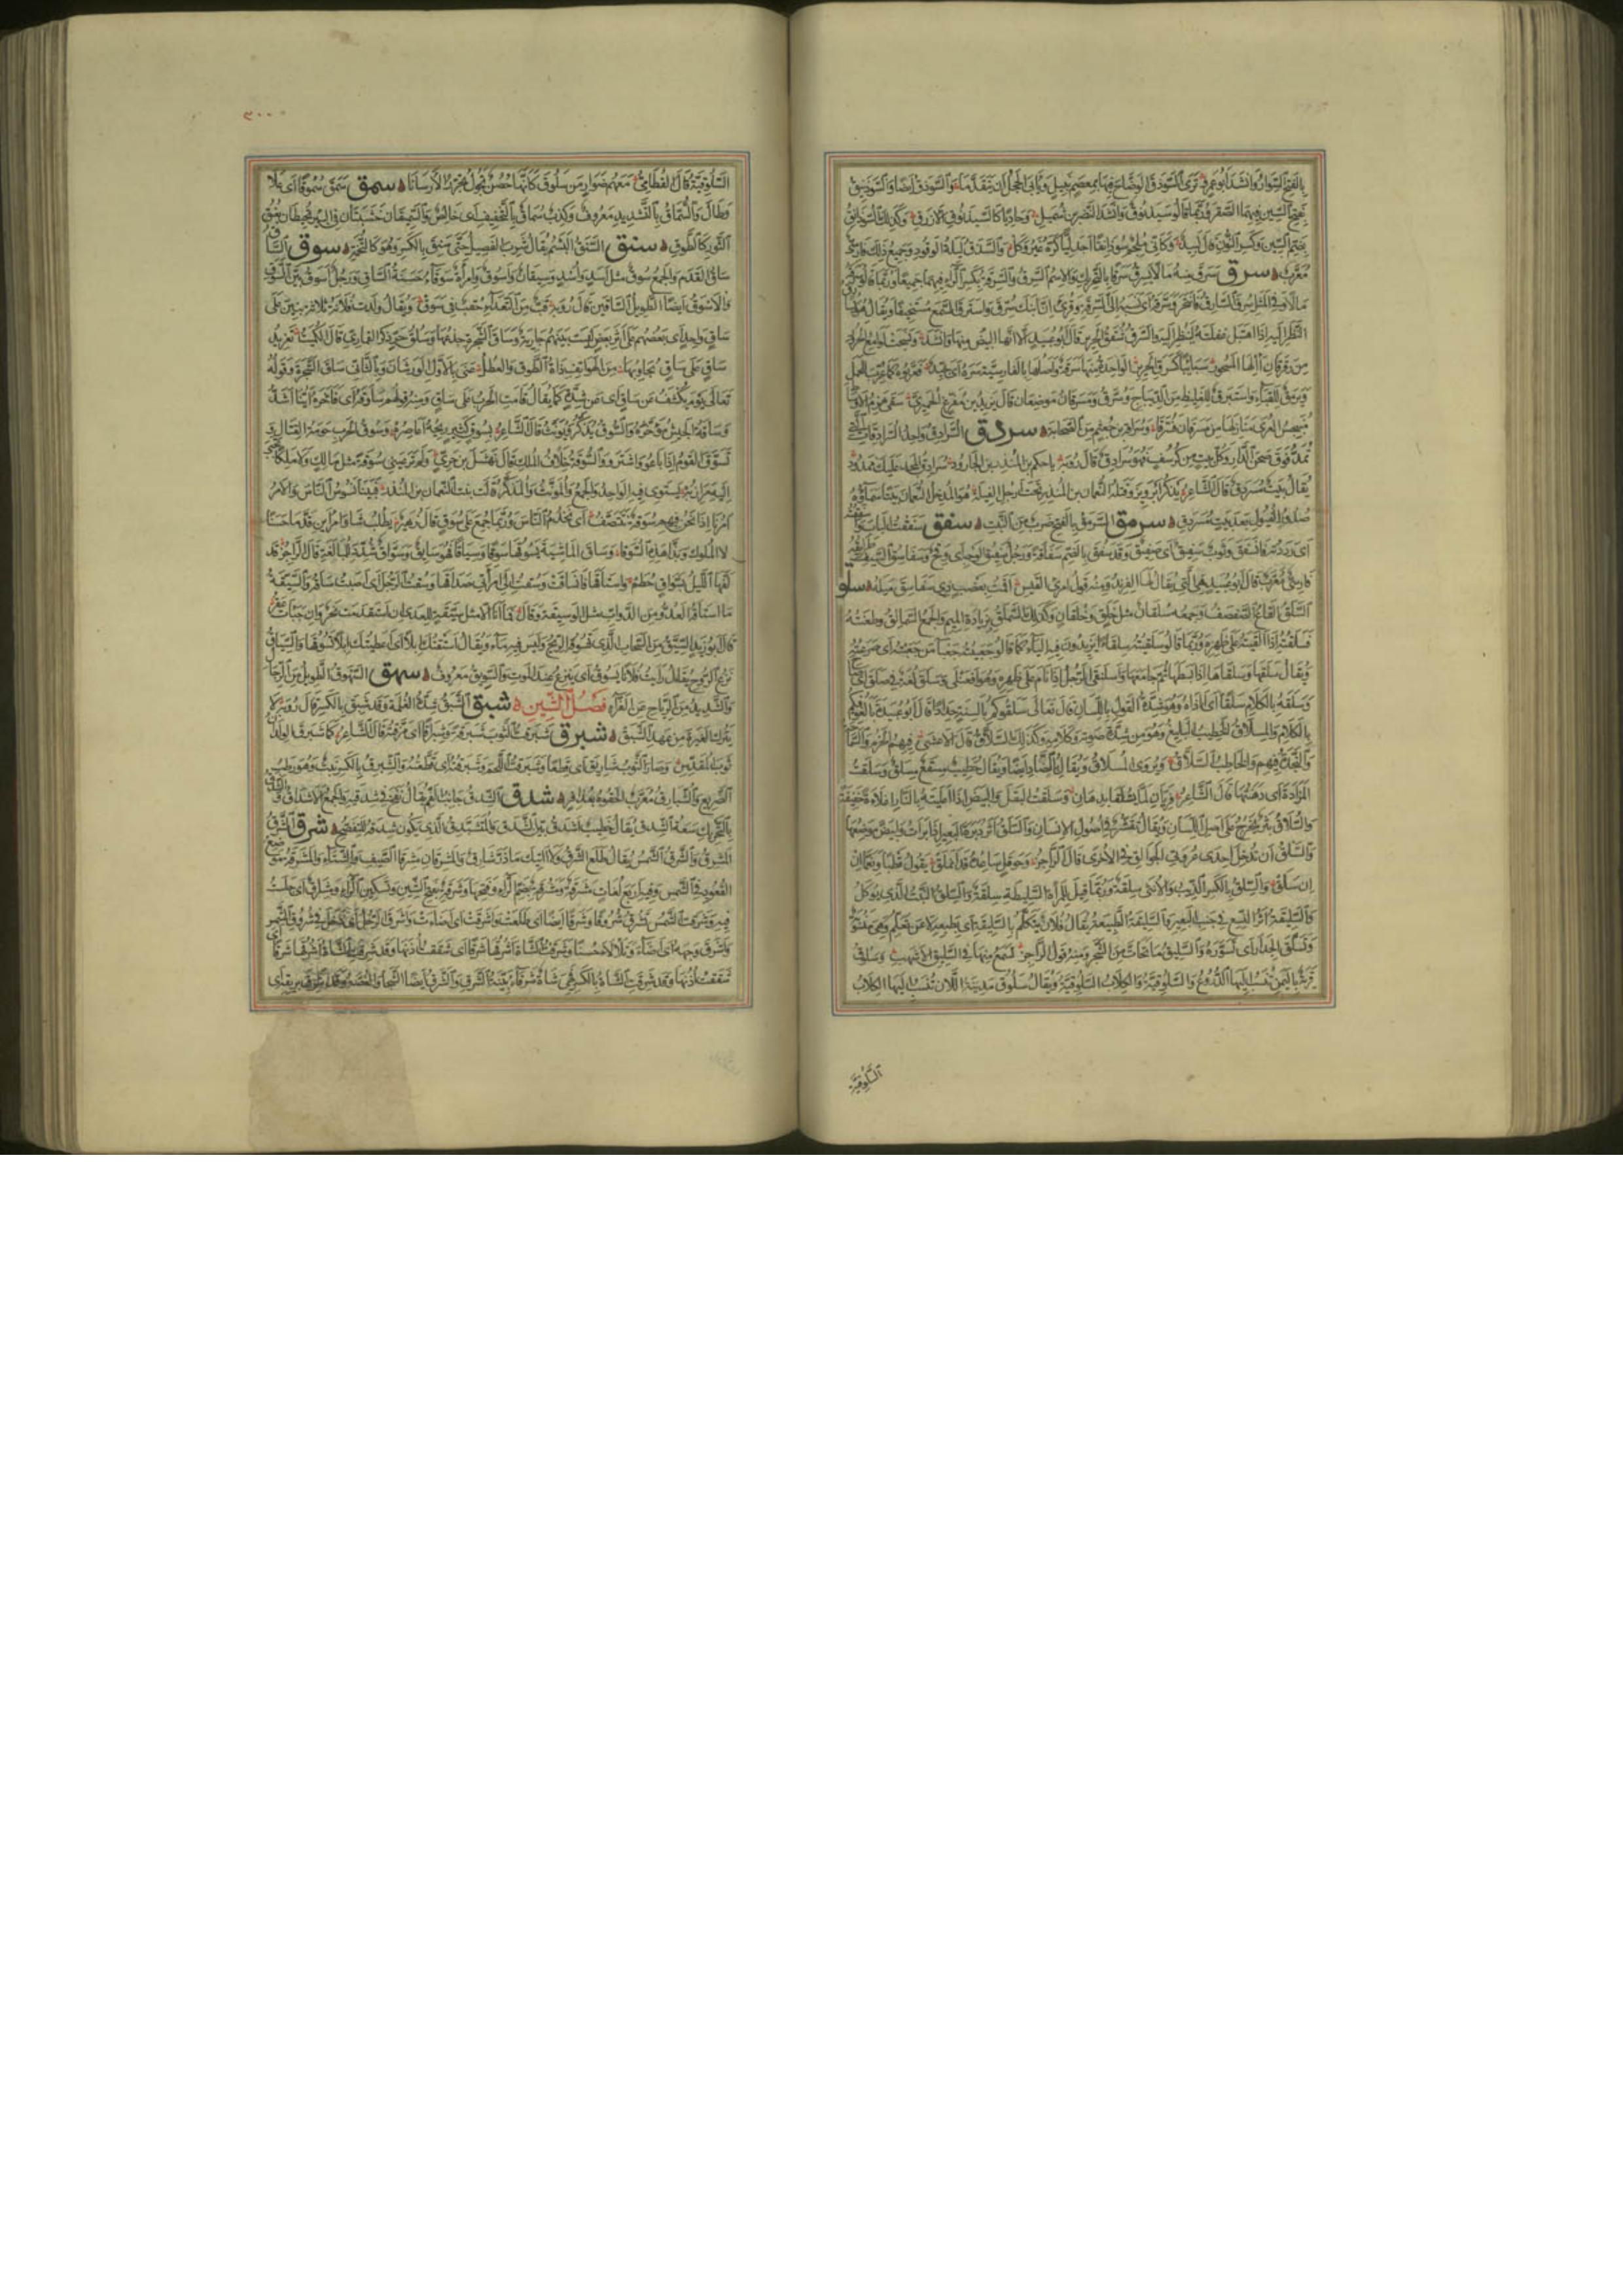 بالفتح السوار وانشد ابو عمرو ترى السوذق الوضاح فيها بمعصم نبيل ويأبى الحجل ان يتقدما والسوذق ايضا والسوذنيق
بفتح السين فيهما الصقر وربما قالوا سيذنوق وانشد النضر بن شميل وحاديا كالسيذنوق الازرق وكذلك السوذانق
بضم السين وكسر النون قال لبيد وكأني ملجم سوذانقا اجدليا كره غير وكل والسذق ليلة الوقود وجميع ذلك فارسي
معرب سرق سرق منه مالا يسرق سرقا بالتحريك والاسم السرق والسرقة بكسر الراء فيهما جميعا وربما قالوا سرقه
مالا وفي المثل سرق السارق فانتحر وسرقه اى نسبه الى السرقة وقرئ ان ابنك سرق واسترق السمع مستخفيا ويقال هو يسارق
النظر اليه اذا اهتبل غفلته لينظر اليه والسرق شقق الحرير قال ابو عبيد الا انها البيض منها وانشد ونسجت لوامع الحرور
من رقرقان آلها المسجور سبائبا كسرق الحرير الواحدة منها سرقة واصلها بالفارسية سره اى جيد فعربوه كما عرب برق للحمل
ويلمق للقباء واستبرق للغليظ من الديباج وسرق ومسرقان موضعان قال يزيد بن مفرغ الحميري سقى هزيم الاوساط
منبجس العرى منازلها من مسرقان فسرقا وسراقة بن جعشم من الصحابة سردق السرادق واحد السرادقات التي
تمد فوق صحن الدار وكل بيت من كرسف فهو سرادق قال رؤبة يا حكم بن المنذر بن الجارود سرادق المجد عليك ممدود
يقال بيت مسردق قال الشاعر يذكر ابرويز وقتله النعمان بن المنذر تحت ارجل الفيلة هو المدخل النعمان بيتا سماؤه
صدور الفيول بعد بيت مسردق سرمق السرمق بالفتح ضرب من النبت سفق سفقت الباب واسفقته
اى رددته فانسفق وثوب سفيق اى صفيق وقد سفق بالضم سفاقة ورجل سفيق الوجه اى وقح وسفاسق السيف طرائقه
فارسي معرب قال ابو عبيد هي التي يقال لها الفرند ومنه قول امرئ القيس اقمت بعضب ذي سفاسق ميله سلق
السلق القاع الصفصف وجمعه سلقان مثل خلق وخلقان وكذلك السملق بزيادة الميم والجمع السمالق وطعنته
فسلقته اذا القيته على ظهره وربما قالوا سلقيته سلقاء يزيدون فيه الياء كما قالوا جعبيته جعباء من جعبته اى صرعته
ويقال سلقها وسلقاها اذا بسطها ثم جامعها واسلنقى الرجل اذا نام على ظهره وهو افعنلى وسلق لغة في صلق اى صاح
وسلقه بالكلام سلقا اى اذاه وهو شدة القول باللسان قال تعالى سلقوكم بالسنة حداد قال ابو عبيدة بالغوا فيكم
بالكلام والمسلاق الخطيب البليغ وهو من شدة صوته وكلامه وكذلك السلاق قال الاعشى فيهم الحزم والسماحة
والنجدة فيهم والخاطب السلاق ويروى المسلاق ويقال بالصاد ايضا ويقال خطيب مسقع مسلق وسلقت
المزادة اى دهنتها قال الشاعر وسلقت البقل والبيض اذا اغليته بالنار اغلاءة خفيفة
والسلاق بثر يخرج على اصل اللسان ويقال تقشر في اصول الاسنان والسلق اثر دبرة البعير اذا برأت وابيض موضعها
والسلق ان تدخل احدى عروتي الجوالق في الاخرى قال الراجز وحوقل ساعده قد انملق يقول قطبا ونعما ان
ان سلق والسلق بالكسر الذئب والانثى سلقة وربما قيل للمرأة السليطة سلقة والسلق النبت الذى يوكل
والسليقة اثر النسع في جنب البعير والسليقة الطبيعة يقال فلان يتكلم بالسليقية اى بطبعه لا عن تعلم وهي منسوبة
وتسلق الجدار اى تسوره والسليق ما تحات من الشجر ومنه قول الراجز تسمع منها في السليق الاشهب وسلوق
قرية باليمن تنسب اليها الدروع والسلوقية والكلاب السلوقية ويقال سلوق مدينة اللان تنسب اليها الكلاب
السلوقية
٣٠٠
السلوقية قال القطامي معهم ضوار من سلوق كانها حصن تجول تجرر الارسانا سمق سمق سموقا اى علا
وطال والسماق بالتشديد معروف وكذب سماق بالتخفيف اى خالص والسميقان خشبتان في النير تحيطان بعنق
الثور كالطوق سنق السنق البشم يقال شرب الفصيل حتى سنق بالكسر وهو كالتخمة سوق الساق
ساق القدم والجمع سوق مثل اسد واسد وسيقان واسوق وامرأة سوقاء حسنة الساق ورجل اسوق بين السوق
والاسوق ايضا الطويل الساقين قال رؤبة قب من التعداء حقب في سوق ويقال ولدت فلانة ثلاثة بنين على
ساق واحد اى بعضهم على اثر بعض ليست بينهم جارية وساق الشجرة جذعها وساق حر ذكر القماري قال الكميت تغريد
ساق على ساق يجاوبها من الهواتف ذات الطوق والعطل عنى بالاول الورشان وبالثاني ساق الشجرة وقوله
تعالى يوم يكشف عن ساق اى عن شدة كما يقال قامت الحرب على ساق ومنه قولهم ساوقه اى فاخره اينا اشد
وساقة الجيش مؤخره والسوق يذكر ويونث قال الشاعر بسوق كثير ريحه واعاصره وسوق الحرب حومة القتال
وتسوق القوم اذا باعوا واشتروا والسوقة خلاف الملك قال نهشل بن حري ولم تر عيني سوقة مثل مالك ولا ملكا تجبى
اليه مرازبه يستوى فيه الواحد والجمع والمونث والمذكر قالت بنت النعمان بن المنذر فبينا نسوس الناس والامر
امرنا اذا نحن فيهم سوقة نتنصف اى نخدم الناس وربما جمع على سوق قال زهير يطلب شأو امرأين قدما حسنا
نالا الملوك وبذا هذه السوقا وساق الماشية يسوقها سوقا وسياقا فهو سائق وسواق شدد للمبالغة قال الراجز قد
لفها الليل بسواق حطم واستاقها فانساقت وسقت الى امرأتي صداقها وسقت الرجل اى اصبت ساقه والسيقة
ما استاقه العدو من الدواب مثل الوسيقة وقال فما انا الا مثل سيقة العدى ان استقدمت نحر وان جبأت عقر
قال ابو زيد السيق من السحاب الذى تسوقه الريح وليس فيه ماء ويقال استقتك ابلا اى اعطيتك ابلا تسوقها والسياق
نزع الروح يقال رأيت فلانا يسوق اى ينزع عند الموت والسويق معروف سهق السهوق الطويل من الرجال
والشديد من الرياح عن الفراء فصل الشين شبق الشبق شدة الغلمة وقد شبق بالكسر قال رؤبة لا
يترك الغيرة من عهد الشبق شبرق شبرقت الثوب شبرقة وشبراقا اى مزقته قال الشاعر كما شبرق الولدان
ثوب المقدس وصار الثوب شباريق اى قطعا وشبرقت اللحم وشربقته اى قطعته والشبرق بالكسر نبت وهو رطب
الضريع والشبارق معرب شدق الشدق جانب الفم يقال نفخ في شدقيه والجمع الاشداق والشدق
بالتحريك سعة الشدق يقال خطيب اشدق بين الشدق والمتشدق الذى يكون شدقه للتفصح شرق الشرق
المشرق والشرق الشمس يقال طلع الشرق ولا اتيك ما ذر شارق والمشرقان مشرقا الصيف والشتاء والمشرقة موضع
القعود في الشمس وفيه اربع لغات مشرقة ومشرقة بضم الراء وفتحها وشرقة بفتح الشين وتسكين الراء ومشراق اى جلست
فيه وشرقت الشمس تشرق شروقا وشرقا ايضا اى طلعت واشرقت اى اضاءت واشرق الرجل اى دخل في شروق الشمس
واشرق وجهه اى اضاء وتلألأ حسنا وشرقت الشاة اشرقها شرقا اى شققت اذنها وقد شرقت الشاة
شققت اذنها وقد شرقت الشاة بالكسر فهي شاة شرقاء بينة الشرق والشرق ايضا الشجا والغصة وقد شرق بريقه اى